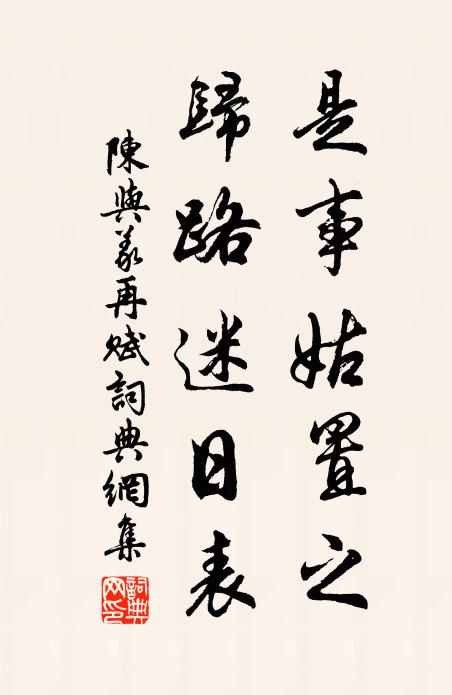 是事姑置之
歸路迷日表
陳與義再賦詞典網集
詞典
网印